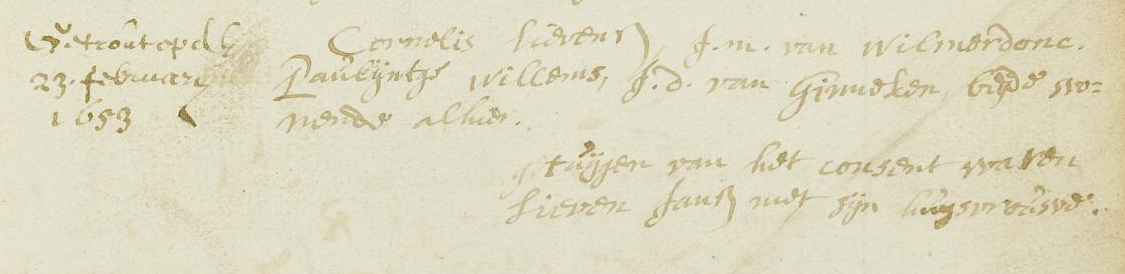 Getrout op dẽ
23. februarij
1653
Cornelis Lievens, J.m. van Wilmerdonc.
Paulijntge Willems, J.d. van Ginneken, beyde wo=
nende alhier.
getuijgen van het consent waren
Lieven Jans met sijn huijsvrouwe.